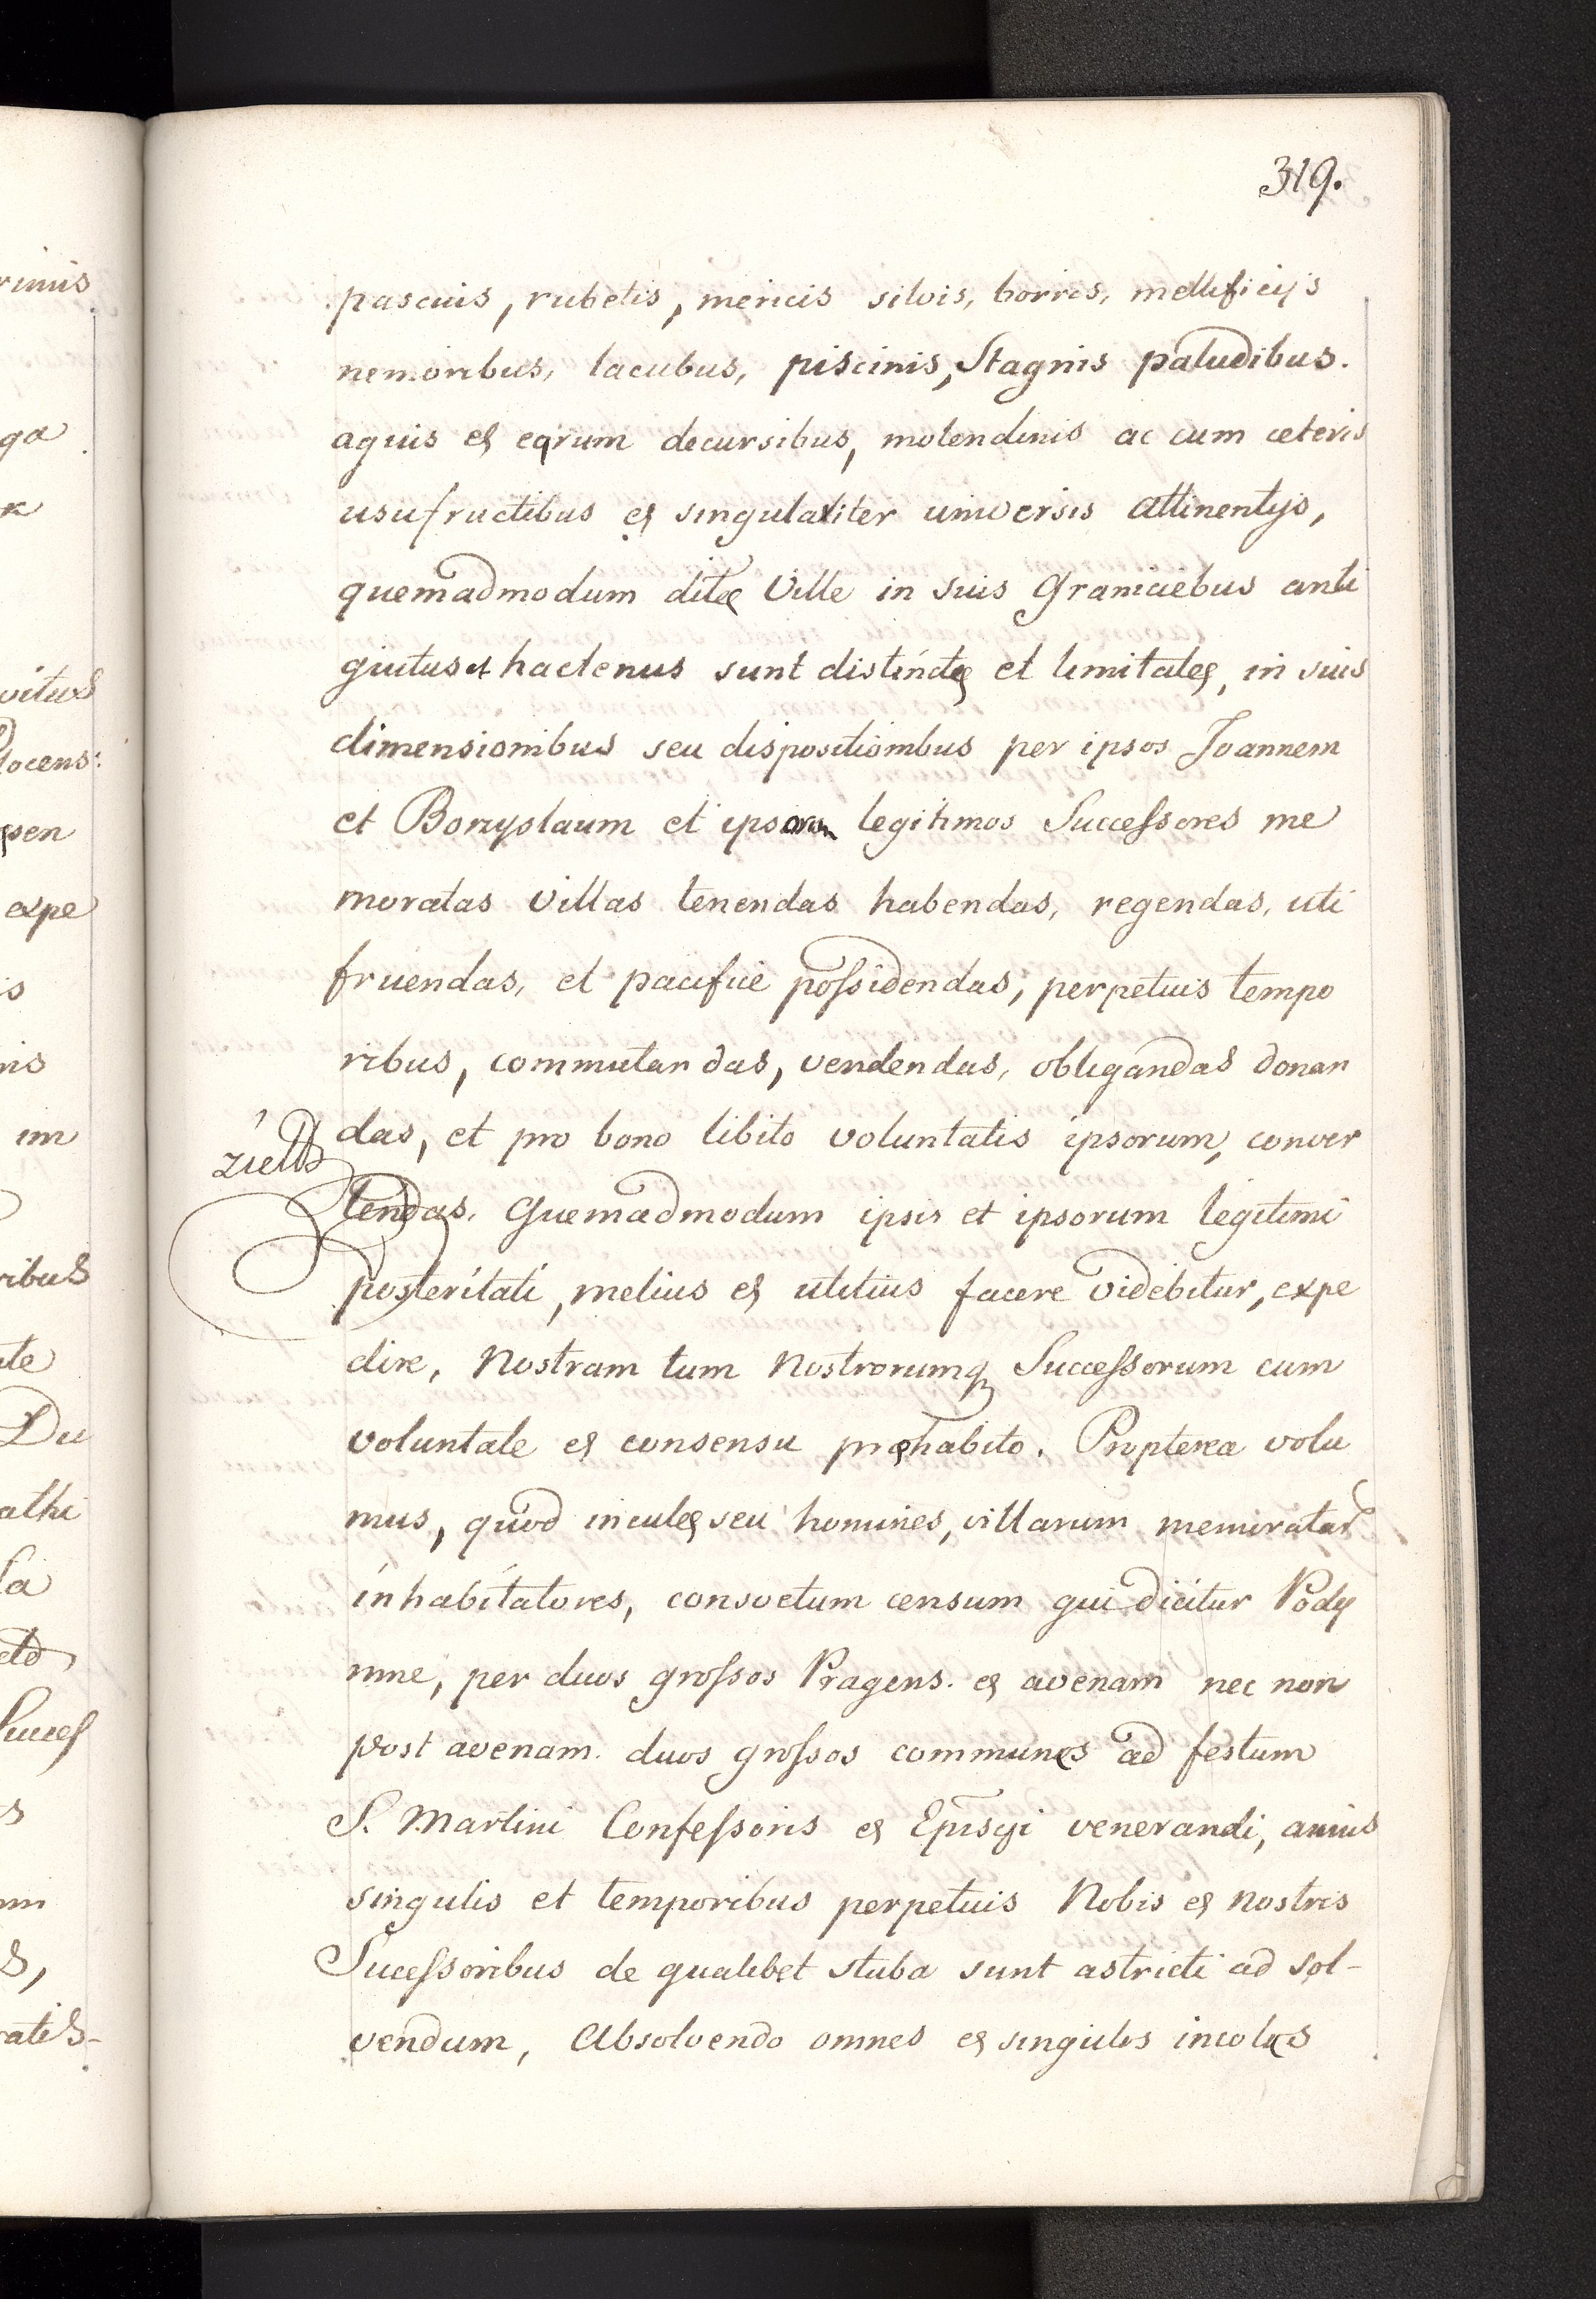 319.
pascuis, rubetis, mericis silvis, borris, mellificijs
nemoribus, lacubus, piscinis, Stagnis paludibus.
aquis et eqrum decursibus, molendinis ac cum ceteris
usufructibus et singulariter universis attinentijs,
quemadmodum ditę Ville in suis Graniciebus anti
quitus et hactenus sunt distinctę et limitatę, in suis
dimensionibus seu dispositionibus per ipsos Joannem
et Borzyslaum et ipsorum legitimos Successores me
moratas villas tenendas habendas, regendas, uti
fruendas, et pacifice possidendas, perpetuis tempo
ribus, commutandas, vendendas, obligandas donan
das, et pro bono libito voluntatis ipsorum, conver
tendas. Quemadmodum ipsis et ipsorum legitimi
posteritati, melius et utilius facere videbitur, expe
dire, Nostram tum Nostrorumq Successorum cum
voluntate et consensu pręhabito. Propterea volu
mus, quod incolę seu homines, villarum memoratar
inhabitatores, consvetum censum qui dicitur Pody
mne, per duos grossos Pragens. et avenam nec non
post avenam. duos grossos communes ad festum
S. Martini Confessoris et Episcpi venerandi, annis
singulis et temporibus perpetuis Nobis et nostris
Sucessoribus de qualibet stuba sunt astricti ad sol-
vendum, Absolvendo omnes et singulos incolas